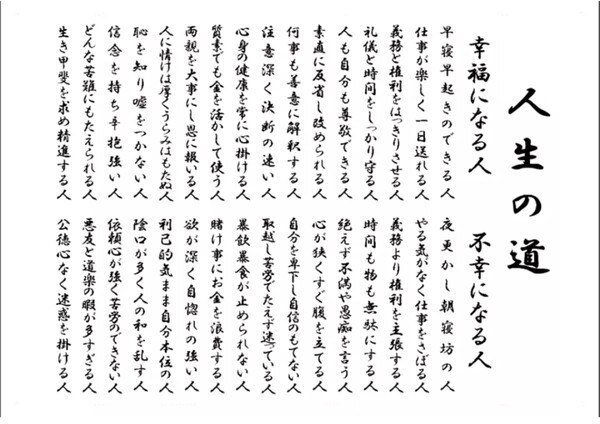 人生の道
幸福になる人
早寝早起きのできる人
仕事が楽しく一日送れる人
義務と権利をはっきりさせる人
礼儀と時間をしっかり守る人
人も自分も尊敬できる人
素直に反省し改められる人
何事も善意に解釈する人
注意深く決断の速い人
心身の健康を常に心掛ける人
質素でも金を活かして使う人
両親を大事にし恩に報いる人
人に情けは厚くうらみはもたぬ人
恥を知り嘘をつかない人
信念を持ち辛抱強い人
どんな苦難にもたえられる人
生き甲斐を求め精進する人
不幸になる人
夜更かし朝寝坊の人
やる気がなく仕事をさぼる人
義務より権利を主張する人
時間も物も無駄にする人
絶えず不満や愚痴を言う人
心が狭くすぐ腹を立てる人
自分を卑下し自信のもてない人
取越し苦労でたえず迷っている人
暴飲暴食が止められない人
賭け事にお金を浪費する人
欲が深く自惚れの強い人
利己的気まま自分本位の人
陰口が多く人の和を乱す人
依頼心が強く苦労のできない人
悪友と道楽の暇が多すぎる人
公徳心なく迷惑を掛ける人